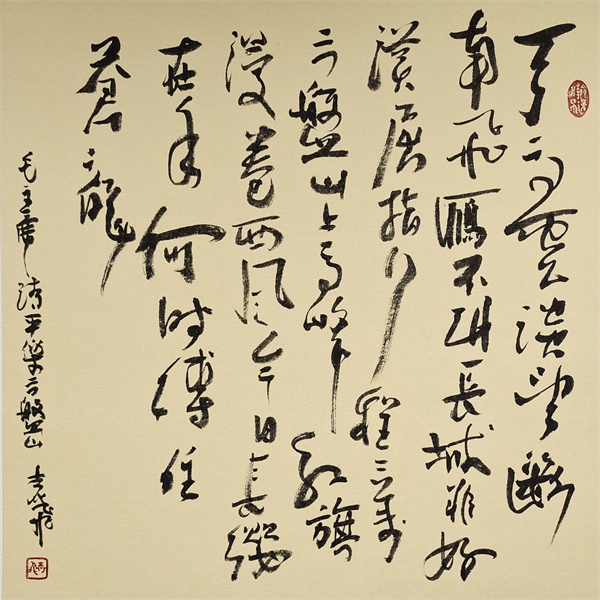 天高雲淡望斷
南飛鴈不到長城非好
漢屈指行程二萬
六盤山上高峰紅旗
漫卷西風今日長纓
在手何時縛住
蒼龍
毛主席清平樂六盤山